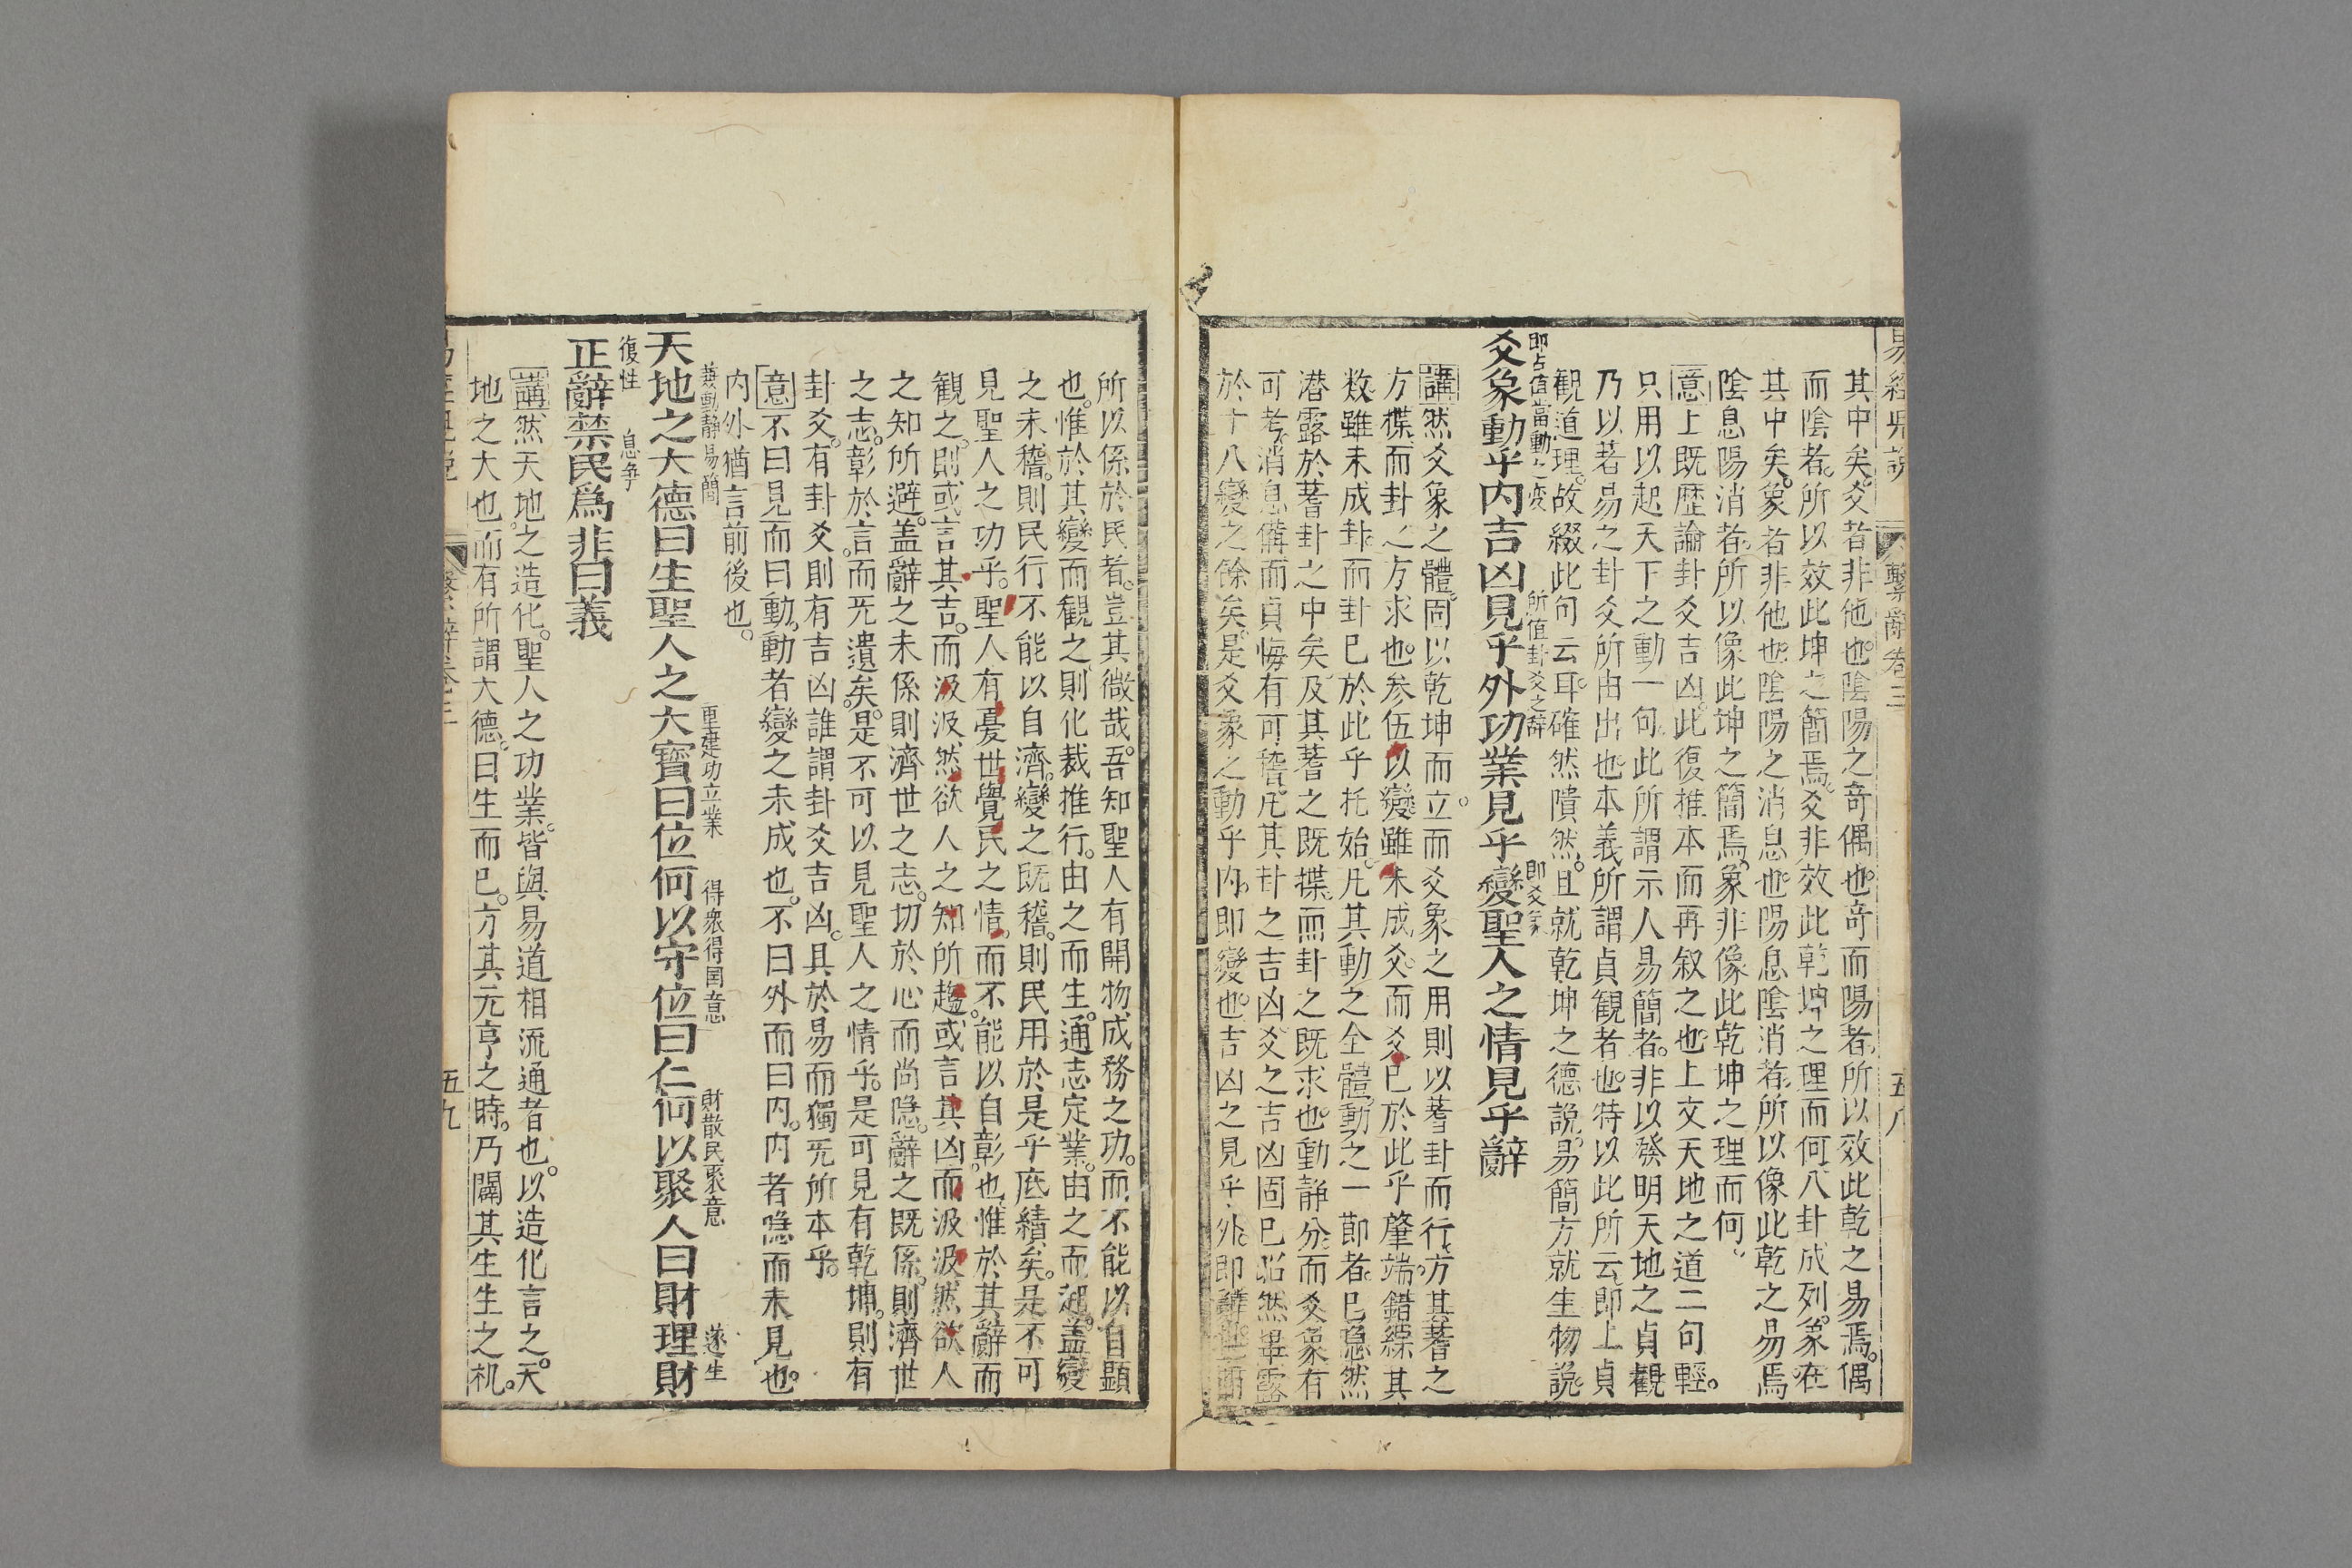 繫辭卷三
五八
其中矣。爻者非他也。陰陽之奇偶也。奇而陽者。所以效此乾之易焉。偶
而陰者。所以效此坤之簡焉。爻非效此乾坤之理而何。八卦成列。象在
其中矣。象者非他也。陰陽之消息也。陽息陰消者。所以像此乾之易焉
陰息陽消者。所以像此坤之簡焉。象非像此乾坤之理而何。
意上既歷論卦爻吉凶。此復推本而再叙之也。上文天地之道二句輕。
只用以起天下之動一句。此所謂示人易簡者。非以發明天地之貞觀
乃以著易之卦爻所由出也。本義所謂貞観者也。特以此所云。即上貞
観道理。故綴此句云耳。確然隤然。且就乾坤之德說。易簡方就生物說。
即占值當動之变
所值卦爻之辞
即爻象
爻象動乎内吉凶見乎外功業見乎變聖人之情見乎辭
講然爻象之體。固以乾坤而立。而爻象之用則以蓍卦而行。方其蓍之
方揲而卦之方求也。参伍以變。雖未成爻。而爻已於此乎肇端。錯綜其
数。雖未成卦。而卦已於此乎托始。凡其動之全體。動之一節者。已隐然
潜露於蓍卦之中矣。及其蓍之既揲。而卦之既求也。動静分而爻象有
可考。消息偹而貞悔有可稽。凡其卦之吉凶爻之吉凶固已昭然畢露
於十八變之餘矣。是爻象之動乎内。即變也。吉凶之見乎外。即辭也。而
所以係於民者。豈其微哉。吾知聖人有開物成務之功。而不能以自顕
也。惟於其變而観之。則化裁推行。由之而生。通志定業。由之而起。盖變
之未稽。則民行不能以自濟。變之既稽。則民用於是乎底績矣。是不可
見聖人之功乎。聖人有憂世覺民之情。而不能以自彰也。惟於其辭而
観之。則或言其吉。而汲汲然欲人之知所趨。或言其凶。而汲汲然欲人
之知所避。盖辭之未係則濟世之志。切於心而尚隐。辭之既係。則濟世
之志。彰於言。而旡遺矣。是不可以見聖人之情乎。是可見有乾坤。則有
卦爻。有卦爻則有吉凶。誰謂卦爻吉凶。具於易而獨旡所本乎。
意不曰見而曰動。動者變之未成也。不曰外而曰内。内者隐而未見也。
内外猶言前後也。
兼動静易簡
重建功立業
得衆得国意
財散民聚意
遂生
天地之大德曰生聖人之大寶曰位何以守位曰仁何以聚人曰財理財
復性
息争
正辭禁民爲非曰義
講然天地之造化。聖人之功業。皆與易道相流通者也。以造化言之。天
地之大也。而有所謂大德。曰生而已。方其元亨之時。乃闢其生生之机。
五九